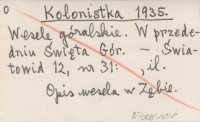 o
Kolonistka 1935.
Wesele góralskie. W przede-
dniu Święta Gór. - Świa-
towid 12, nr 31: , il.
Opis wesela w Zębie.